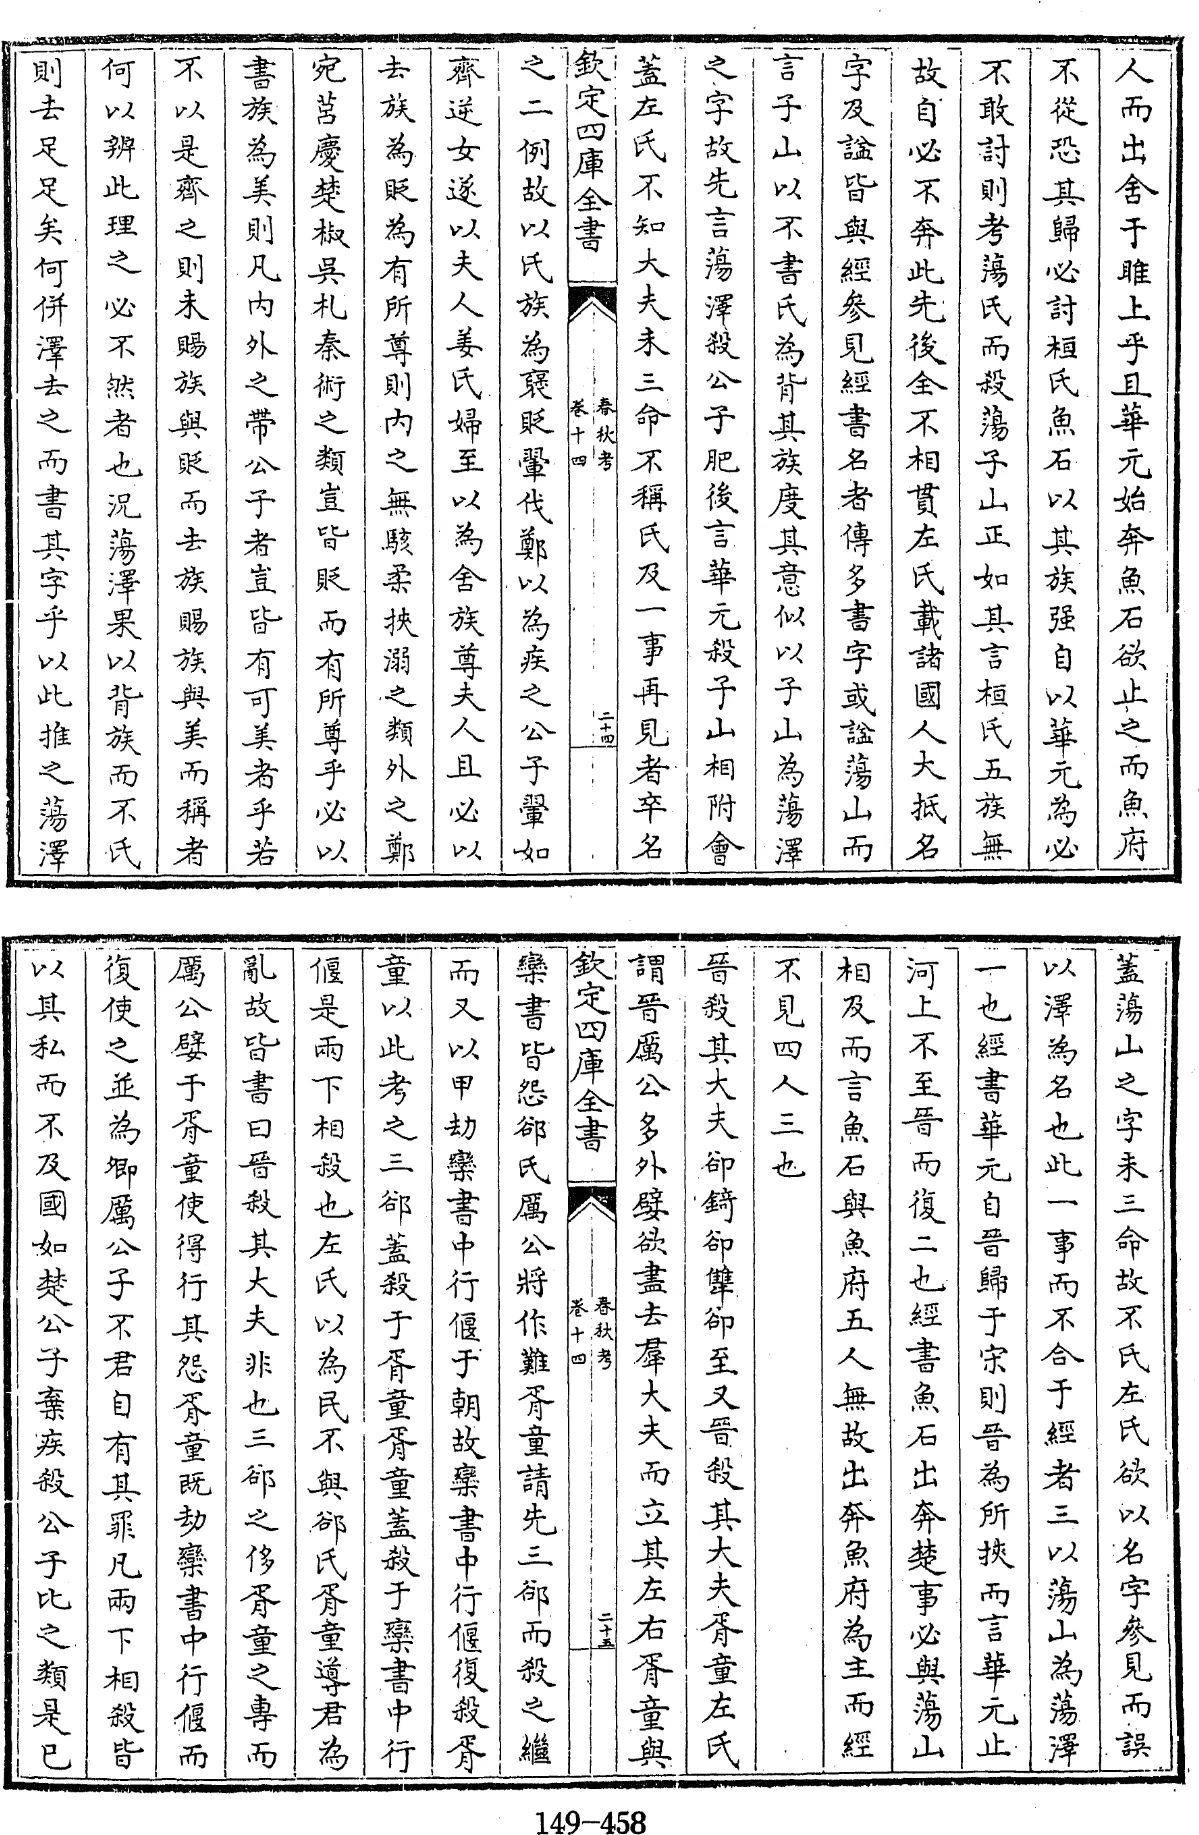 人而出舍于睢上乎且華元始奔魚石欲止之而魚府
不從恐其歸必討桓氏魚石以其族强自以華元為必
不敢討則考蕩氏而殺蕩子山正如其言桓氏五族無
故自必不奔此先後全不相貫左氏載諸國人大抵名
字及諡皆與經參見經書名者傳多書字或諡蕩山而
言子山以不書氏為背其族度其意似以子山為蕩澤
之字故先言蕩澤殺公子肥後言華元殺子山相附會
蓋左氏不知大夫未三命不稱氏及一事再見者卒名
欽定四庫全書
春秋考
卷十四
二十四
之二例故以氏族為褒貶翬伐鄭以為疾之公子翬如
齊逆女遂以夫人姜氏婦至以為舍族尊夫人且必以
去族為貶為有所尊則内之無駭柔挾溺之類外之鄭
宛莒慶楚椒吳札秦術之類豈皆貶而有所尊乎必以
書族為美則凡内外之帶公子者豈皆有可美者乎若
不以是齊之則未賜族與貶而去族賜族與美而稱者
何以辨此理之必不然者也況蕩澤果以背族而不氏
則去足足矣何併澤去之而書其字乎以此推之蕩澤
蓋蕩山之字未三命故不氏左氏欲以名字參見而誤
以澤為名也此一事而不合于經者三以蕩山為蕩澤
一也經書華元自晉歸于宋則晉為所挾而言華元止
河上不至晉而復二也經書魚石出奔楚事必與蕩山
相及而言魚石與魚府五人無故出奔魚府為主而經
不見四人三也
晉殺其大夫郤錡郤犨郤至又晉殺其大夫胥童左氏
謂晉厲公多外嬖欲盡去羣大夫而立其左右胥童與
欽定四庫全書
春秋考
卷十四
二十五
欒書皆怨郤氏厲公將作難胥童請先三郤而殺之繼
而又以甲劫欒書中行偃于朝故欒書中行偃復殺胥
童以此考之三郤蓋殺于胥童胥童蓋殺于欒書中行
偃是兩下相殺也左氏以為民不與郤氏胥童導君為
亂故皆書曰晉殺其大夫非也三郤之侈胥童之專而
厲公嬖于胥童使得行其怨胥童既劫欒書中行偃而
復使之並為卿厲公子不君自有其罪凡兩下相殺皆
以其私而不及國如楚公子棄疾殺公子比之類是已
149-458